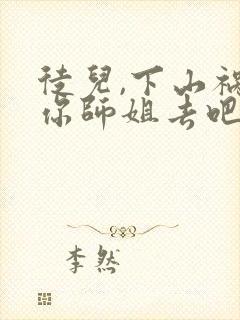 徒兒,下山禍
你師姐去吧
李然